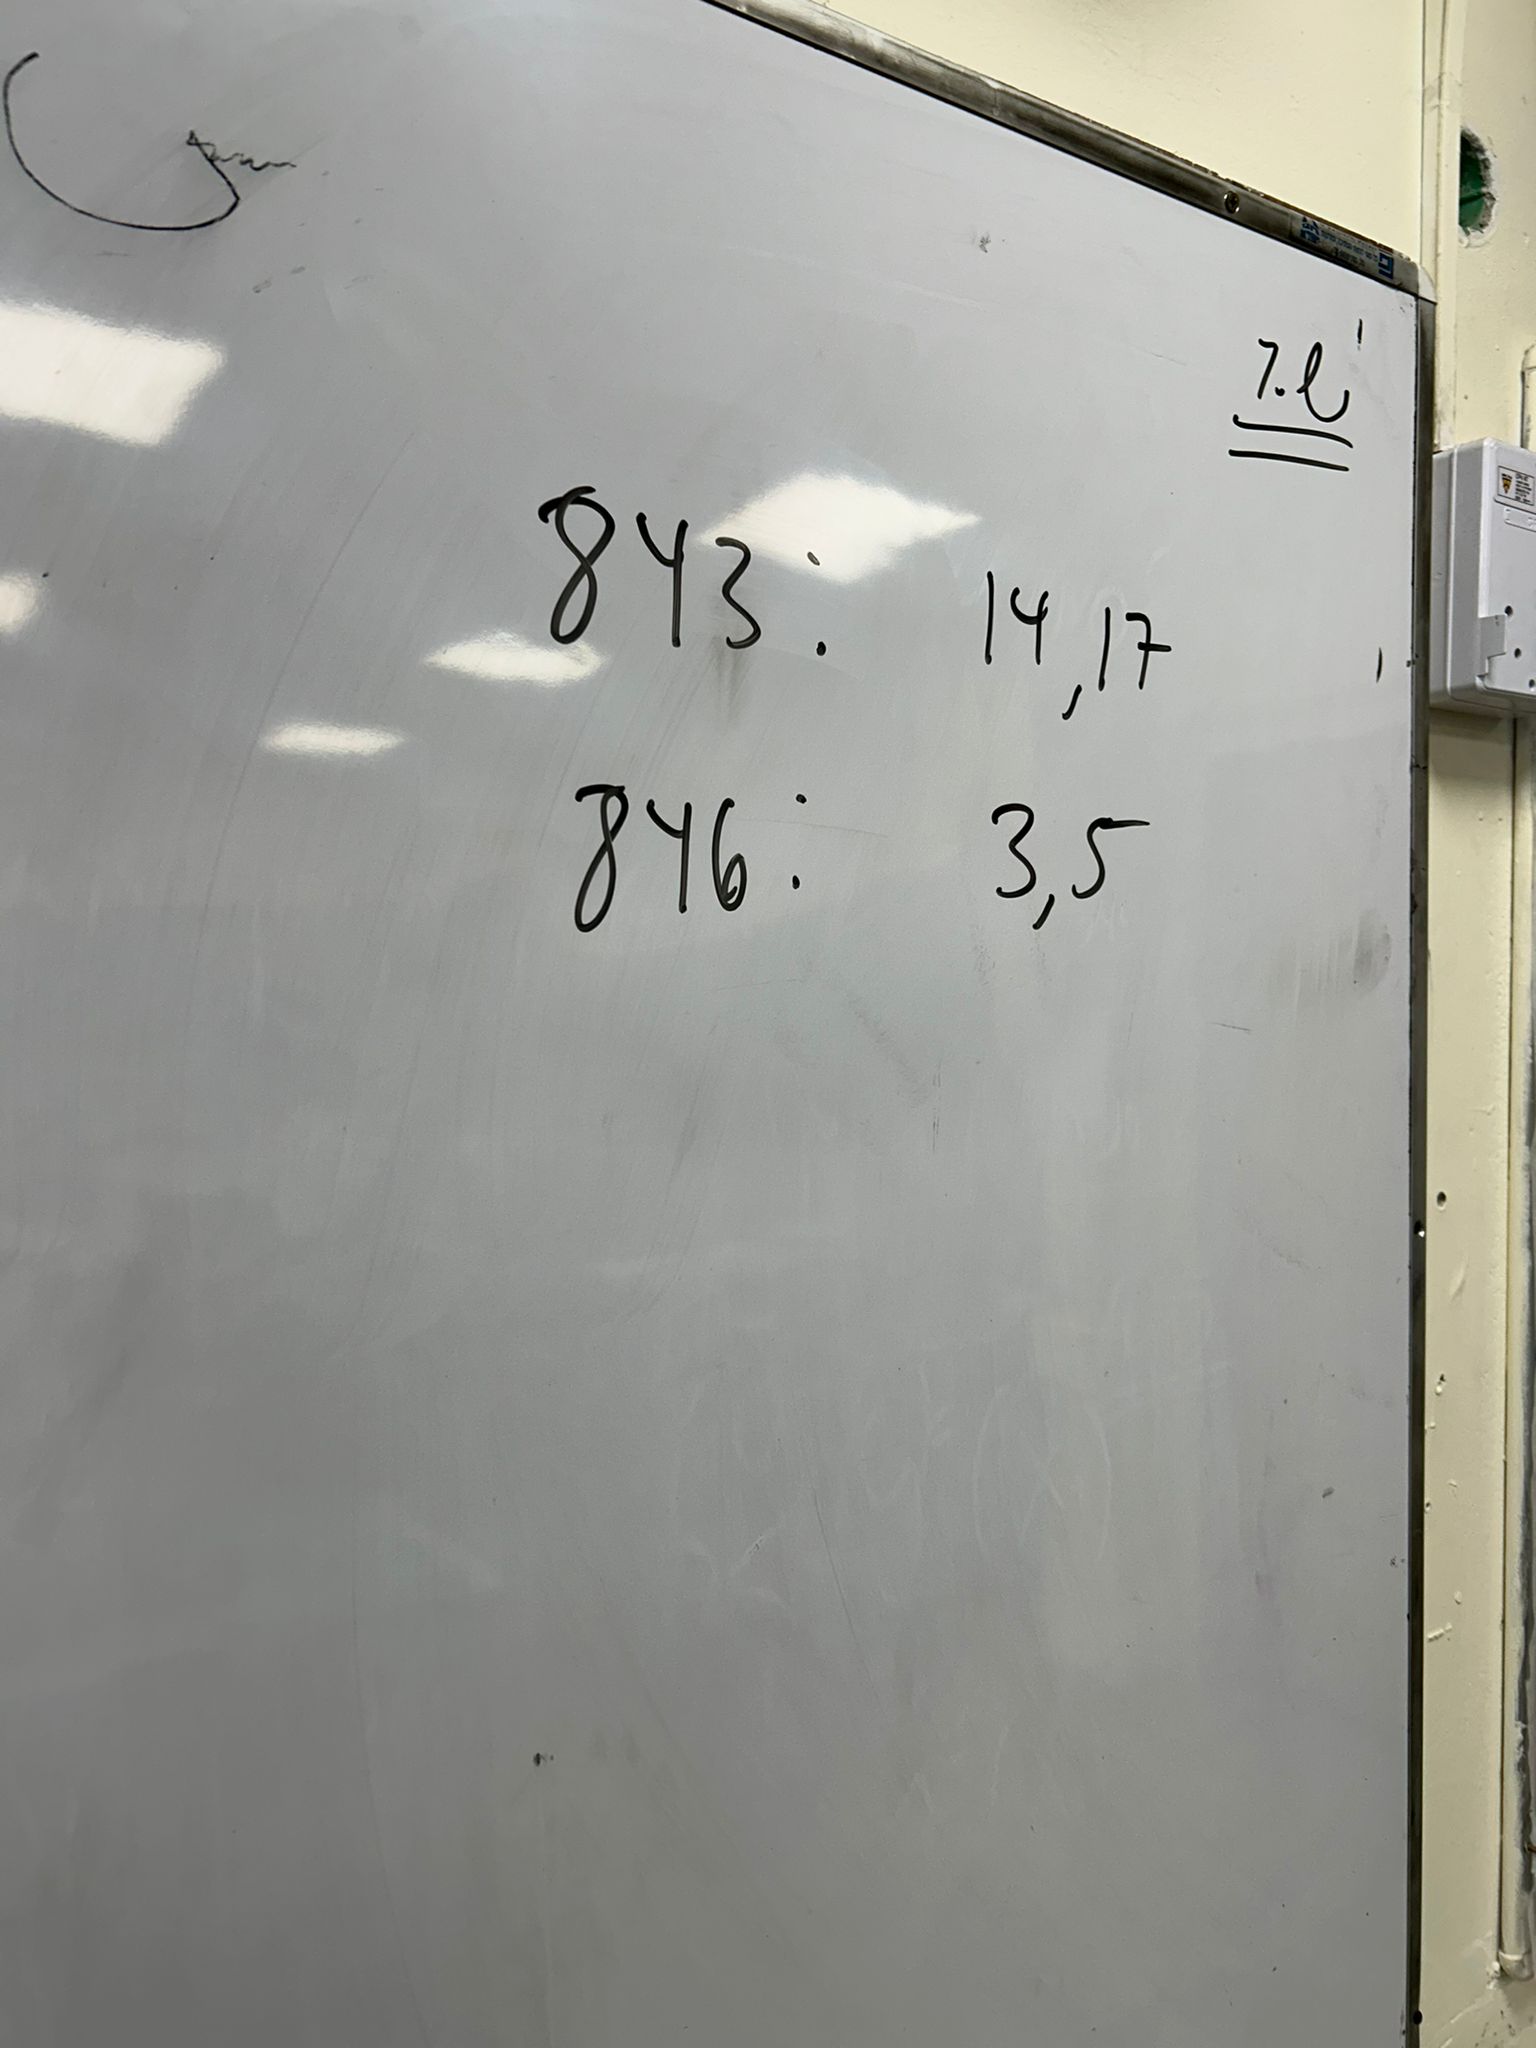 843: 14,17
846: 3,5